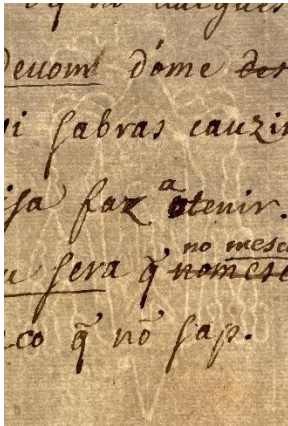 devom d'ome des
i sabras cauzir
isa faz atenir.
no mesc
u sera q̃ nomcre
co q̃ nō sap.